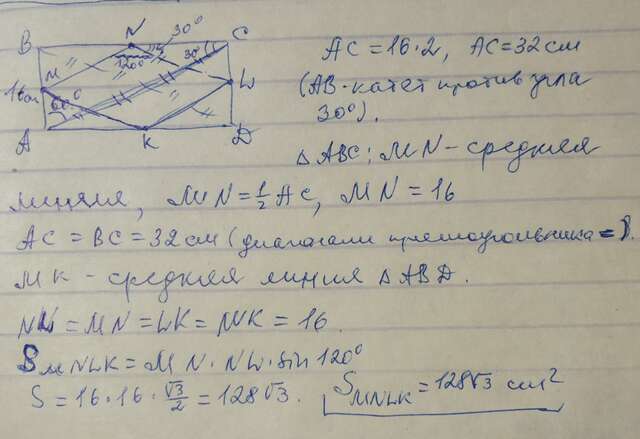 B N 30° C
120° 30°
M
16см L
60°
A K D
AC = 16·2, AC = 32 см
(AB - катет против угла
30°).
△ABC: MN - средняя
линия, MN = 1/2 AC, MN = 16
AC = BC = 32 см (диагонали прямоугольника =).
MK - средняя линия △ABD.
NL = MN = LK = MK = 16.
S MNLK = MN · NL · sin 120°
S = 16·16·√3/2 = 128√3. S MNLK = 128√3 см²